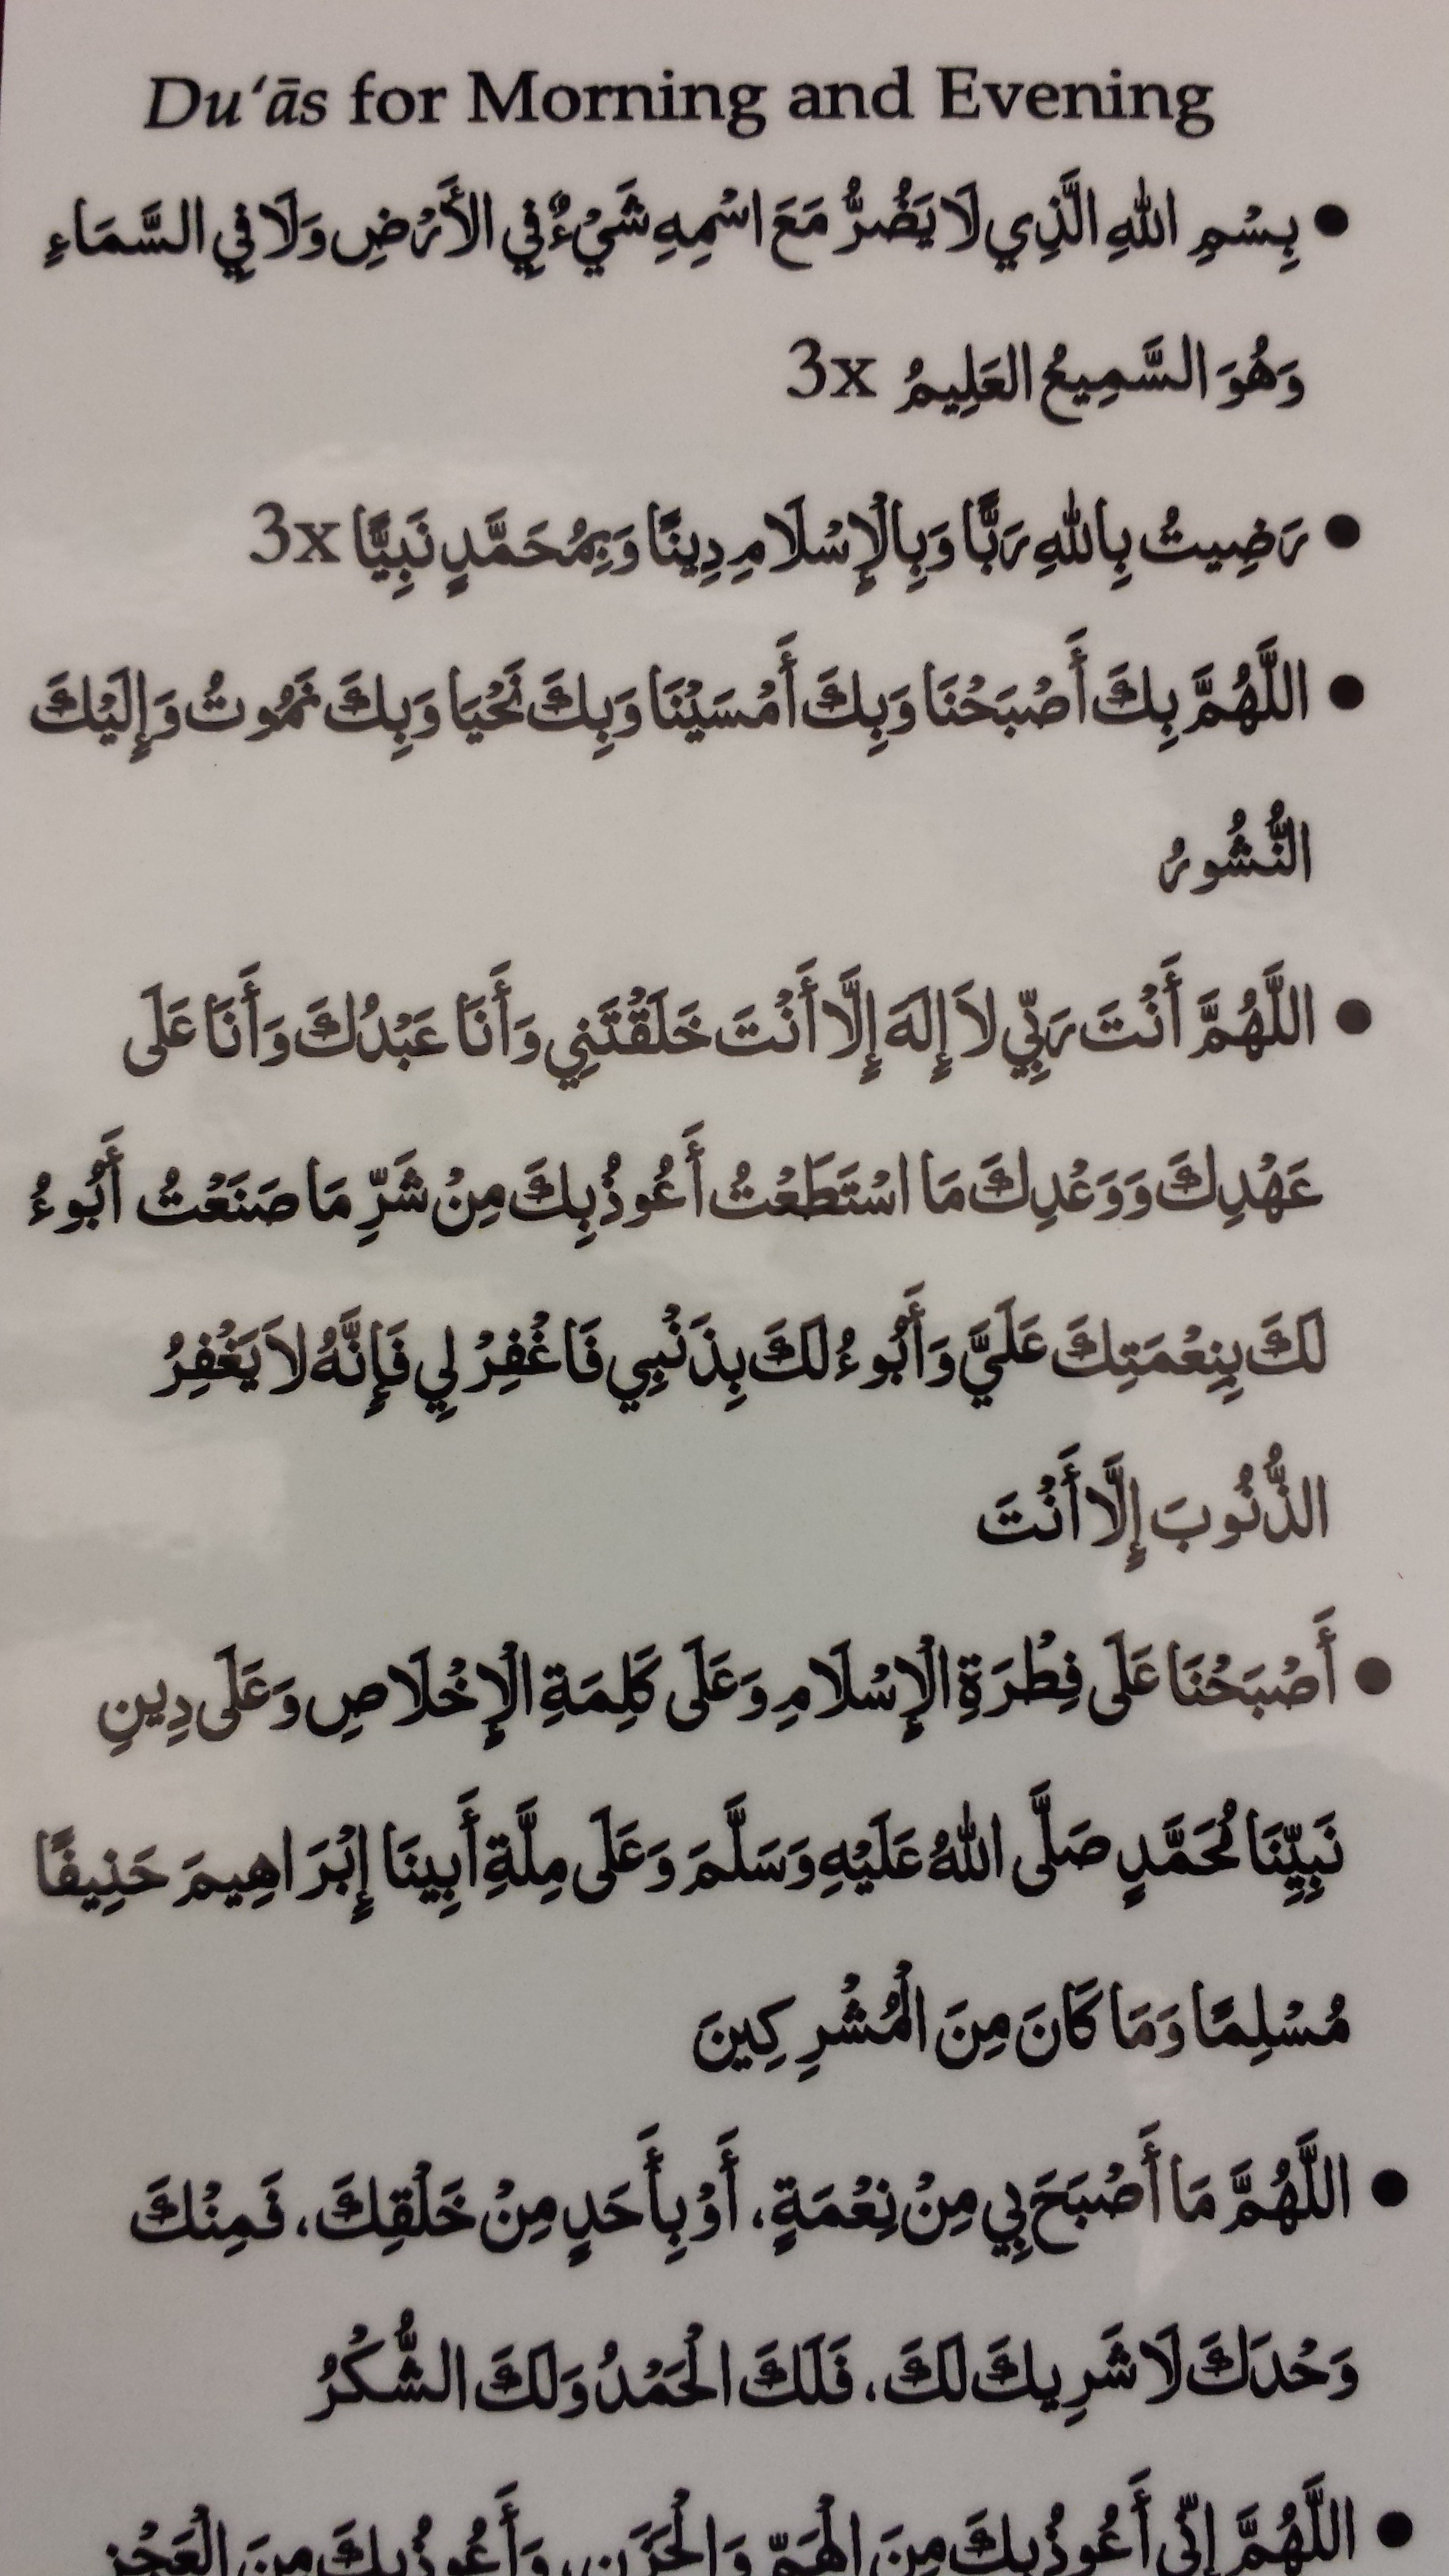 Du‘ās for Morning and Evening
● بِسْمِ اللهِ الَّذِي لَا يَضُرُّ مَعَ اسْمِهِ شَيْءٌ فِي الأَرْضِ وَلَا فِي السَّمَاءِ
وَهُوَ السَّمِيعُ العَلِيمُ 3x
● رَضِيتُ بِاللهِ رَبًّا وَبِالْإِسْلَامِ دِينًا وَبِمُحَمَّدٍ نَبِيًّا 3x
● اللَّهُمَّ بِكَ أَصْبَحْنَا وَبِكَ أَمْسَيْنَا وَبِكَ نَحْيَا وَبِكَ نَمُوتُ وَإِلَيْكَ
النُّشُورُ
● اللَّهُمَّ أَنْتَ رَبِّي لاَ إِلَهَ إِلَّا أَنْتَ خَلَقْتَنِي وَأَنَا عَبْدُكَ وَأَنَا عَلَى
عَهْدِكَ وَوَعْدِكَ مَا اسْتَطَعْتُ أَعُوذُ بِكَ مِنْ شَرِّ مَا صَنَعْتُ أَبُوءُ
لَكَ بِنِعْمَتِكَ عَلَيَّ وَأَبُوءُ لَكَ بِذَنْبِي فَاغْفِرْ لِي فَإِنَّهُ لاَ يَغْفِرُ
الذُّنُوبَ إِلَّا أَنْتَ
● أَصْبَحْنَا عَلَى فِطْرَةِ الْإِسْلَامِ وَعَلَى كَلِمَةِ الْإِخْلَاصِ وَعَلَى دِينِ
نَبِيِّنَا مُحَمَّدٍ صَلَّى اللهُ عَلَيْهِ وَسَلَّمَ وَعَلَى مِلَّةِ أَبِينَا إِبْرَاهِيمَ حَنِيفًا
مُسْلِمًا وَمَا كَانَ مِنَ الْمُشْرِكِينَ
● اللَّهُمَّ مَا أَصْبَحَ بِي مِنْ نِعْمَةٍ، أَوْ بِأَحَدٍ مِنْ خَلْقِكَ، فَمِنْكَ
وَحْدَكَ لَا شَرِيكَ لَكَ، فَلَكَ الْحَمْدُ وَلَكَ الشُّكْرُ
● اللَّهُمَّ إِنِّي أَعُوذُ بِكَ مِنَ الْهَمِّ وَالْحَزَنِ، وَأَعُوذُ بِكَ مِنَ الْعَجْزِ